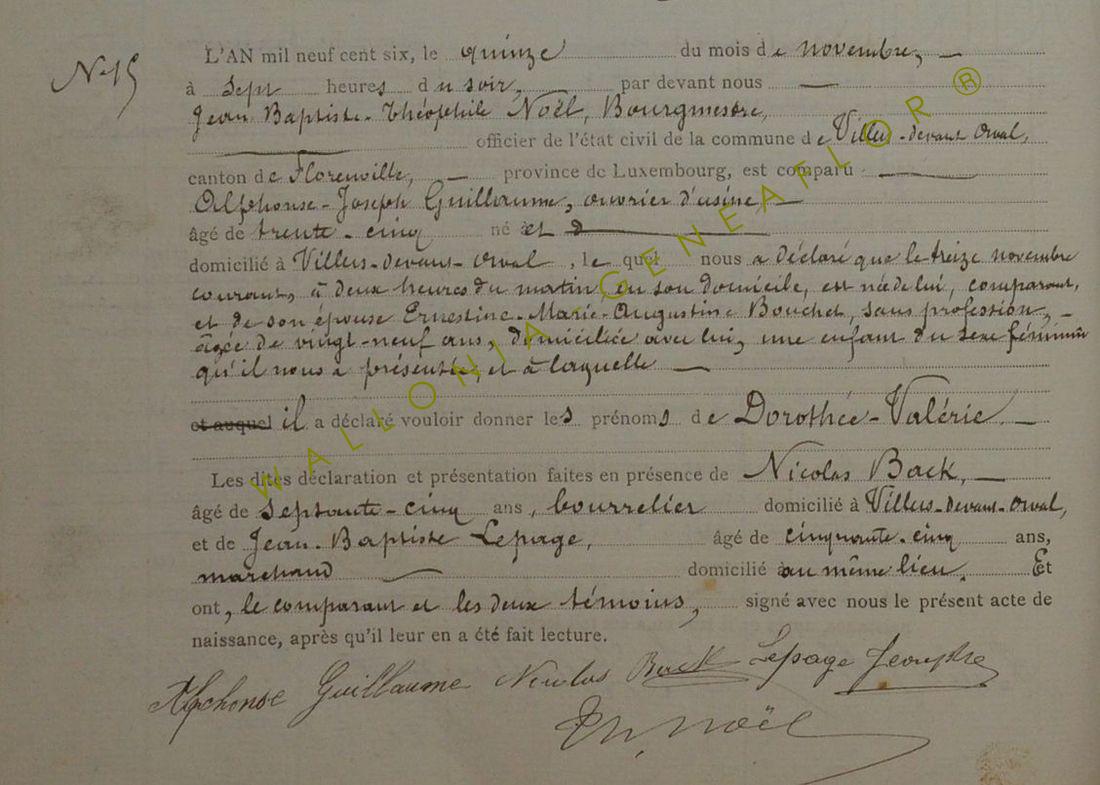 N° 15
L'AN mil neuf cent six, le quinze du mois de novembre,
à sept heures du soir, par devant nous
Jean Baptiste-Théophile Noël, Bourgmestre,
officier de l'état civil de la commune de Villers-devant Orval,
canton de Florenville, province de Luxembourg, est comparu
Alphonse-Joseph Guillaume, ouvrier d'usine
âgé de trente-cinq né à et d
domicilié à Villers-devant-Orval, le quel nous a déclaré que le treize novembre
courant, à deux heures du matin, en son domicile, est née de lui, comparant,
et de son épouse Ernestine-Marie-Augustine Bouchet, sans profession,
âgée de vingt-neuf ans, domiciliée avec lui, une enfant du sexe féminin
qu'il nous a présentée, et à laquelle
et auquel il a déclaré vouloir donner les prénoms de Dorothée-Valérie.
Les dites déclaration et présentation faites en présence de Nicolas Back,
âgé de septante-cinq ans, bourrelier domicilié à Villers-devant-Orval,
et de Jean-Baptiste Lepage, âgé de cinquante-cinq ans,
marchand domicilié au même lieu. Et
ont, le comparant et les deux témoins, signé avec nous le présent acte de
naissance, après qu'il leur en a été fait lecture.
Alphonse Guillaume Nicolas Back Lepage
Th. Noël
WALLONIA GENEAFLOR ®